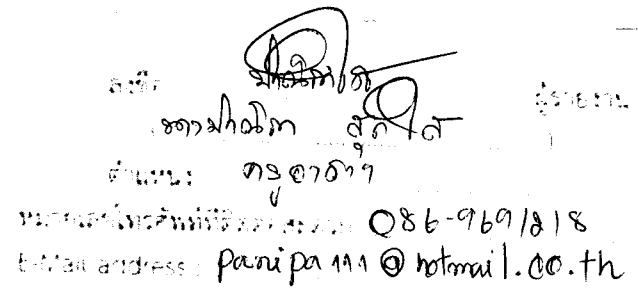 ลงชื่อ ผู้รายงาน
ตำแหน่ง ครูอาสาฯ
หมายเลขโทรศัพท์ที่ติดต่อสะดวก 086-9691218
E-Mail address : panipa111@hotmail.co.th